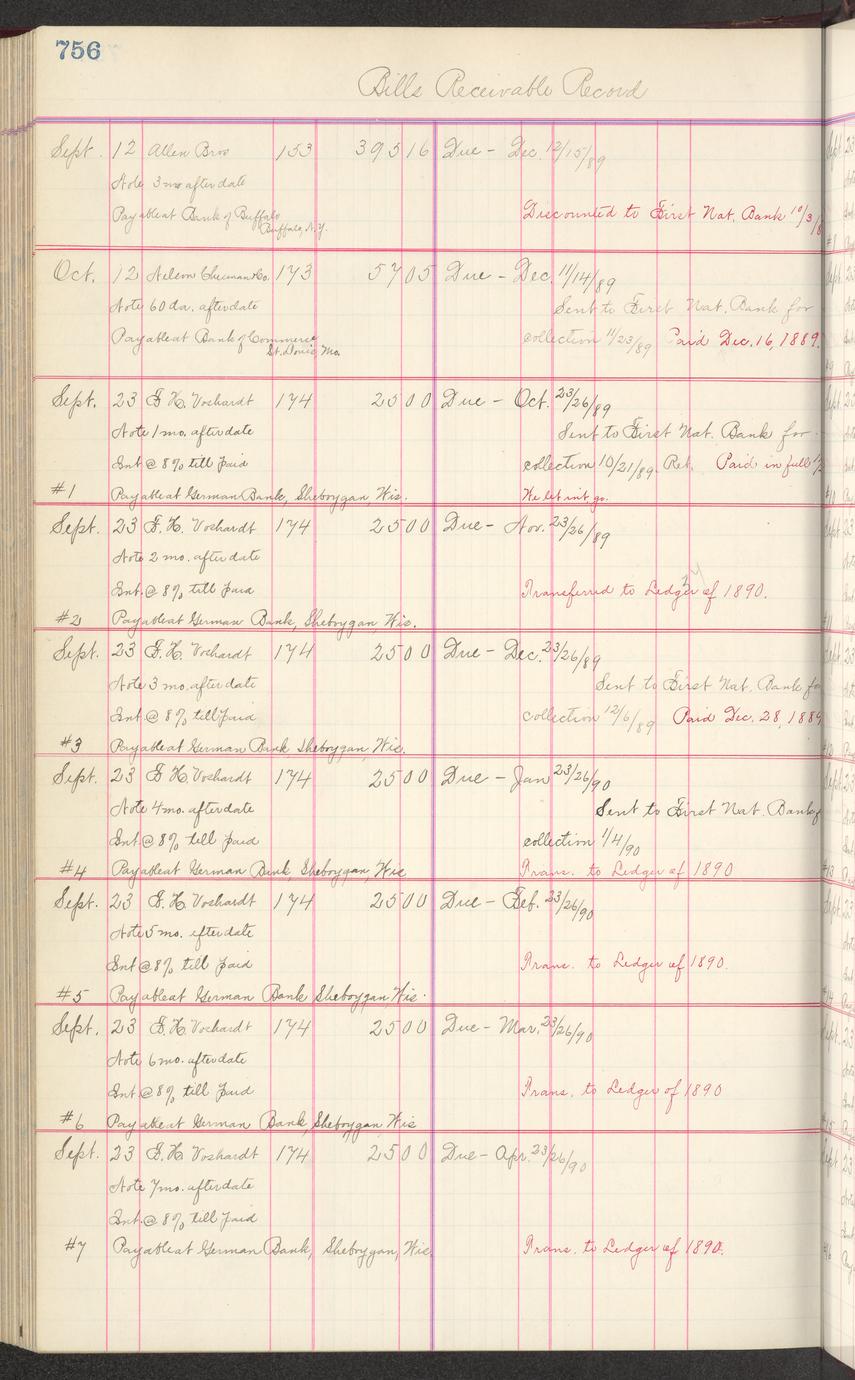 756
Bills Receivable Record
Sept. 12 Allen Bros 153 395 16 Due - Dec. 12/15/89
Note 3 mo after date
Payable at Bank of Buffalo Discounted to First Nat. Bank 10/3/8
Buffalo, N.Y.
Oct. 12 Nelson & Co. 173 57 05 Due - Dec. 11/14/89
Note 60 da. after date Sent to First Nat. Bank for
Payable at Bank of Commerce collection 11/23/89 Paid Dec. 16, 1889.
St. Louis, Mo.
Sept. 23 G. H. Voshardt 174 25 00 Due - Oct. 23/26/89
Note 1 mo. after date Sent to First Nat. Bank for
Int @ 8% till paid collection 10/21/89. Ret. Paid in full
#1 Payable at German Bank, Sheboygan, Wis. We let int go.
Sept. 23 G. H. Voshardt 174 25 00 Due - Nov. 23/26/89
Note 2 mo. after date
Int. @ 8% till paid Transferred to Ledger of 1890.
#2 Payable at German Bank, Sheboygan, Wis.
Sept. 23 G. H. Voshardt 174 25 00 Due - Dec. 23/26/89
Note 3 mo. after date Sent to First Nat. Bank for
Int. @ 8% till paid collection 12/6/89 Paid Dec. 28, 1889
#3 Payable at German Bank Sheboygan, Wis.
Sept. 23 G H. Voshardt 174 25 00 Due - Jan 23/26/90
Note 4 mo. after date Sent to First Nat. Bank
Int @ 8% till paid collection 1/4/90
#4 Payable at German Bank, Sheboygan, Wis Trans. to Ledger of 1890
Sept. 23 G. H. Voshardt 174 25 00 Due - Feb. 23/26/90
Note 5 mo. after date
Int @ 8% till paid Trans. to Ledger of 1890.
#5 Payable at German Bank Sheboygan Wis.
Sept. 23 G. H. Voshardt 174 25 00 Due - Mar. 23/26/90
Note 6 mo. after date
Int. @ 8% till paid Trans. to Ledger of 1890
#6 Payable at German Bank, Sheboygan, Wis
Sept. 23 G. H. Voshardt 174 25 00 Due - Apr. 23/26/90
Note 7 mo. after date
Int. @ 8% till paid
#7 Payable at German Bank, Sheboygan, Wis. Trans. to Ledger of 1890.